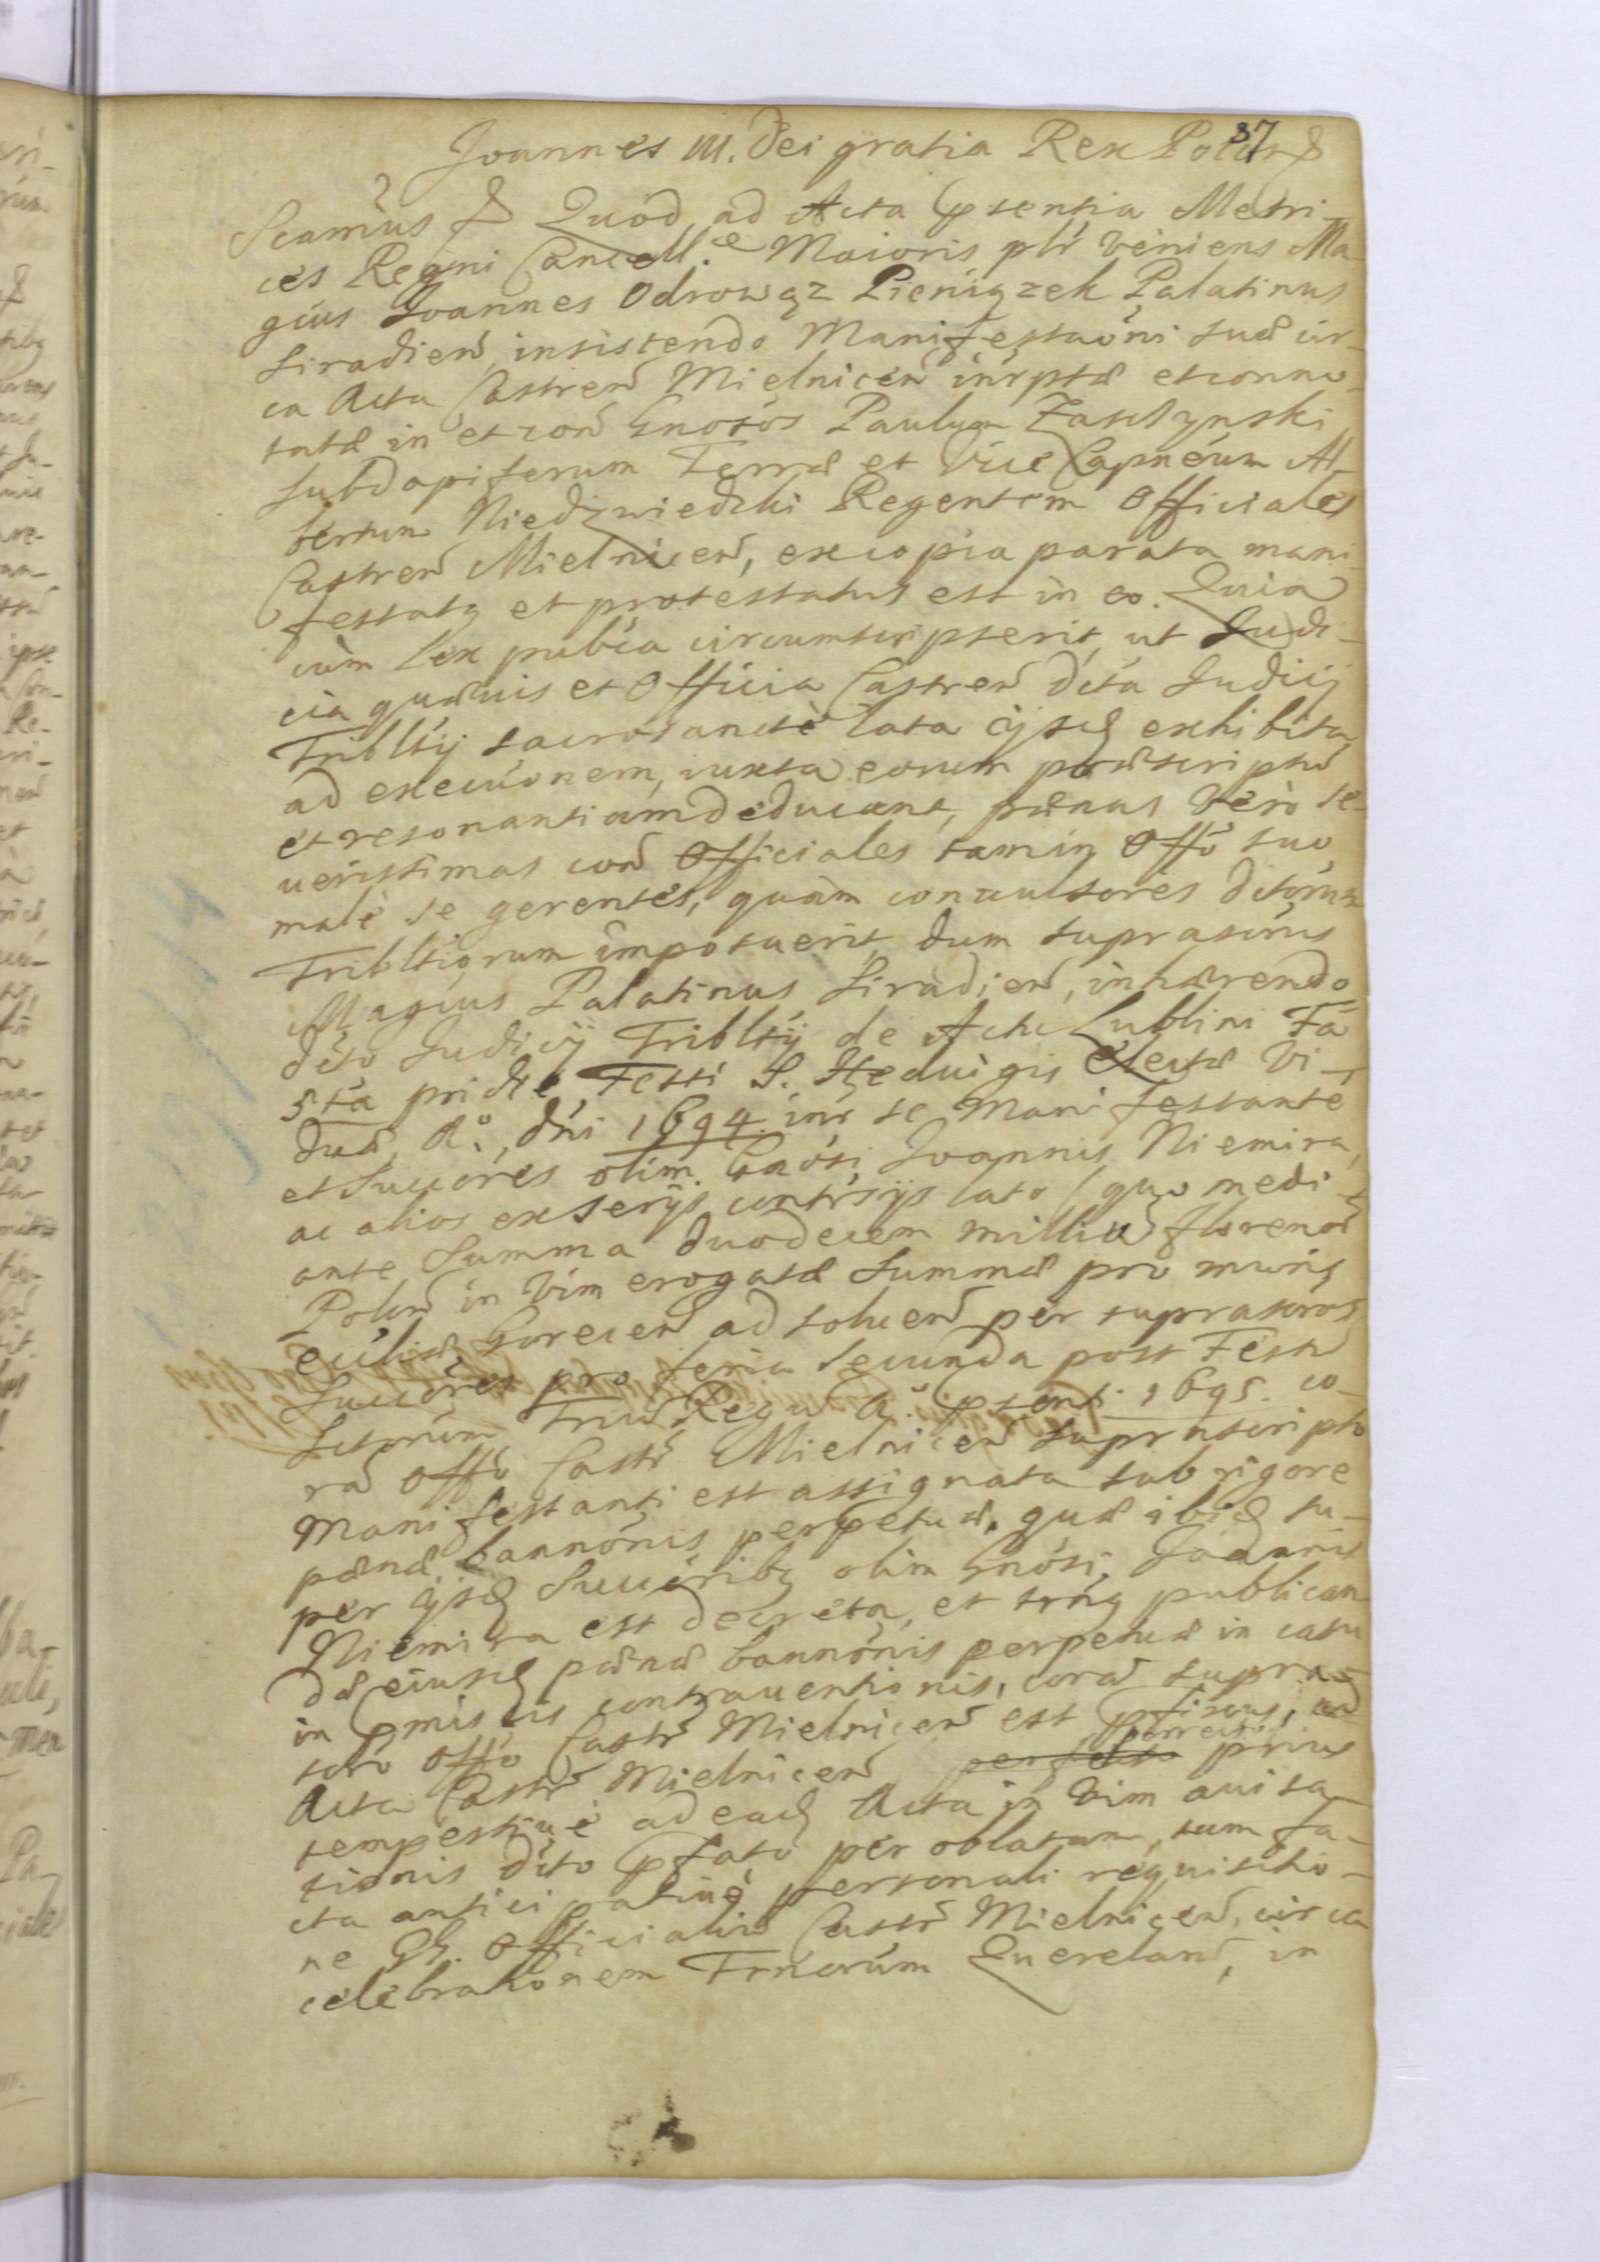 37
Joannes III. Dei gratia Rex Polär &
Scamus & Quod ad Acta pntentia Metri-
ces Regni Cancell.æ Maioris plr veniens Ma-
gcus Joannes Odrowąz Pieniązek Palatinus
Siradien, insistendo Manifestaöni suæ cir-
ca Acta Castren Mielnicen inrptæ et conno-
tatæ in et con Gnosos Paulum Zasczynski
subdapiferum Terræ et Vice Capneum Al-
bertum Niedzwiedzki Regentem Officiales
Castren Mielnicen, ex copia parata mani-
festatq et protestatus est in eo. Quia
cum lex publca circumscripserit, ut Judi-
cia quævis et Officia Castren dcta Judicij
Tribltij sacrosancte lata ijsd exhibita
ad execuonem, iuxta eorum præscriptu
et resonantiam deducant, pænas vero se-
verissimas con Officiales tam in Offo suo
male se gerentes, quam convulsores dctorum
Tribltiorum imposuerit, dum suprascrus
Magcus Palatinus Siradien, inhærendo
dcto Judicij Tribltij de Actu Lublini Fa
5ta pridie Festi S. Heduigis Electæ Vi-
duæ, Ao. dni 1694 inr se Manifestante
et Succores olim Gnosi Joannis Niemira,
ac alios ex serijs contrsijs lato (quo medi-
ante Summa duodecem milliu florenor
Polon in vim erogatæ Summæ pro muris
eccliæ Gorecen ad solven per suprascros
Succores pro feria secunda post Festu
Sctorum Triu Regu Ao. pnti 1695. co-
ra Offo Castr Mielnicen suprascripto
Manifestanti est assignata sub rigore
pænæ bannonis perpetuæ, quæ ibid su-
per ijsd Succoribq olim Gnosi Joannis
Niemira est decreta, et trnq publican
dæ eiusd pænæ bannonis perpetuæ in casu
in pmissis contraventionis, cora supra
scro Offo Castr Mielnicen est pfixus, ad
Acta Castr Mielnicen porrecto prius
tempestive ad ead Acta in vim avisa-
tionis dcto pfato per oblatam, tum fa-
cta anticipative personali requisitio-
ne GG. Officialiu Castr Mielnicen, circa
celebrationem Trnorum Querelan, in